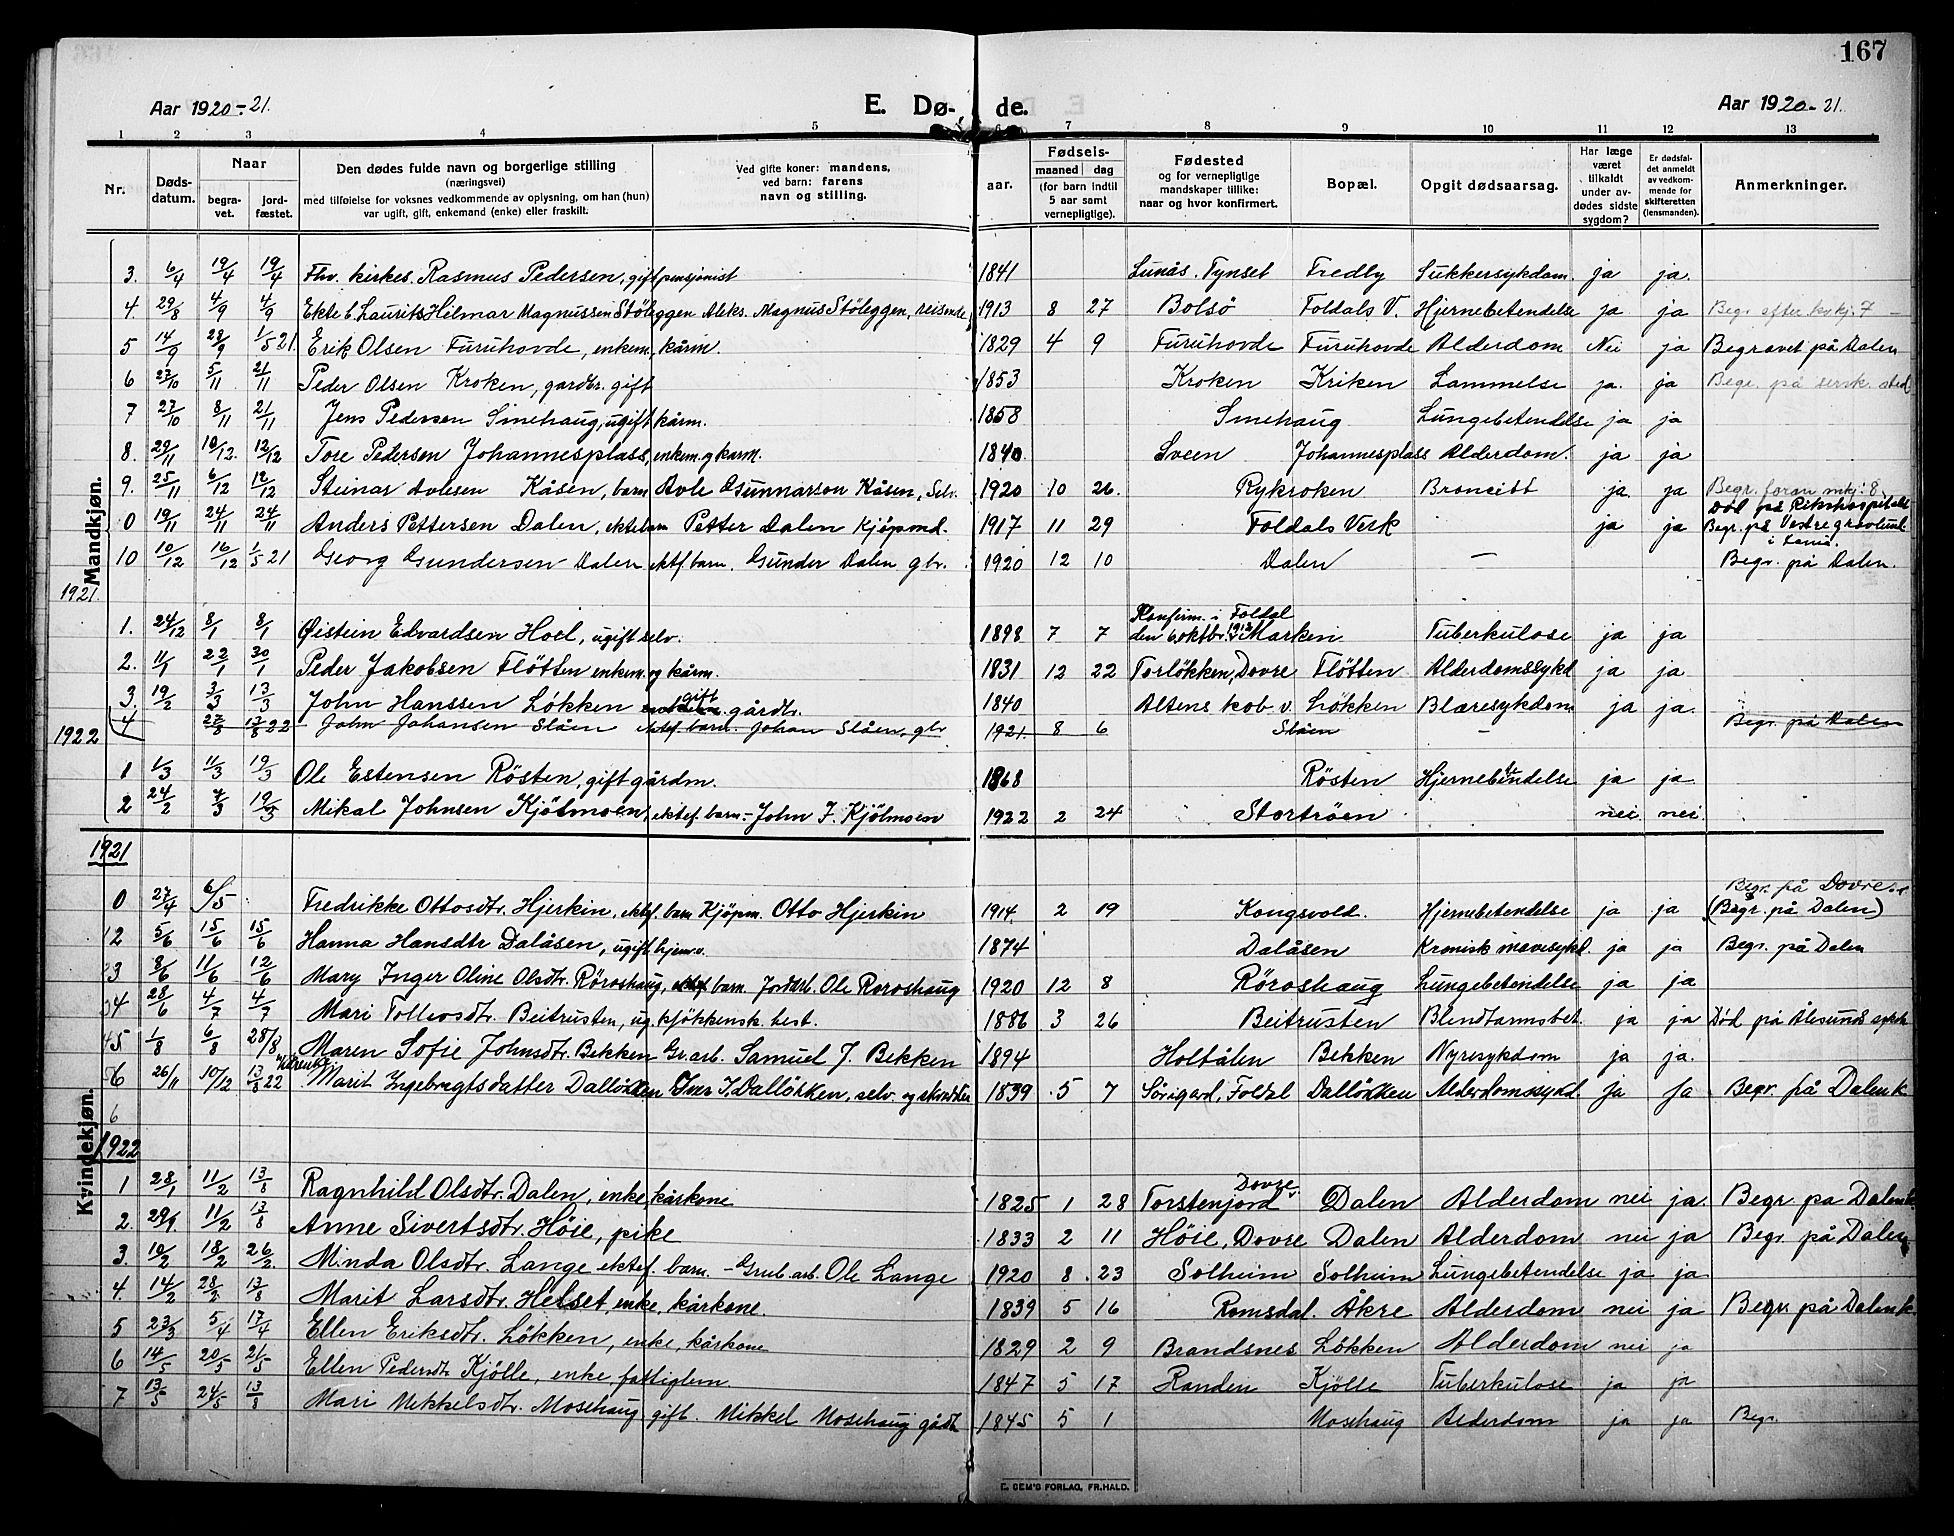 167
Aar 1920-21. E. Dø- de. Aar 1920-21.
1 2 3 4 5 6 7 8 9 10 11 12 13
Nr. Døds-datum. Naar begra-vet. jord-fæstet. Den dødes fulde navn og borgerlige stilling (næringsvei) med tilføielse for voksnes vedkommende av oplysning, om han (hun) var ugift, gift, enkemand (enke) eller fraskilt. Ved gifte koner: mandens, ved barn: farens navn og stilling. Fødsels- aar. maaned dag (for barn indtil 5 aar samt vernepligtige). Fødested og for vernepligtige mandskaper tillike: naar og hvor konfirmert. Bopæl. Opgit dødsaarsag. Har læge været tilkaldt under av-dødes sidste sygdom? Er dødsfal-det anmeldt av vedkom-mende for skifteretten (lensmanden). Anmerkninger.
Mandkjøn.
3. 6/4 19/4 19/4 Fhv. kirkes. Rasmus Pedersen, gift pensjonist 1841 Lunås. Tynset Fredly Sukkersykdom. ja ja.
4. 29/8 4/9 4/9 Ekte b. Laurits Helmar Magnussen Støleggen Aleks. Magnus Støleggen, reisende 1913 8 27 Bolsö Foldals V. Hjernebetendelse ja ja Begr. efter kvkj. 7
5 14/9 28/9 1/5 21 Erik Olsen Furuhovde, enkem. kårm. 1829 4 9 Furuhovde Furuhovde Alderdom Nei ja Begravet på Dalen
6 27/10 5/11 21/11 Peder Olsen Kroken, gardbr. gift 1853 Kroken Kriken Lammelse ja. ja Begr. på
7 27/10 8/11 21/11 Jens Pedersen Smehaug, ugift kårm. 1858 Smehaug Lungebetendelse ja ja
8. 29/11 10/12. 12/12 Tore Pedersen Johannesplass, enkem. og karm. 1840. Sveen Johannesplass Alderdom. ja ja
9. 25/11 6/12 12/12 Steinar Avlesen Kåsen, barn Avle Gunnarson Kåsen, Selv. 1920 10 26. Rykroken Broncitt ja ja Begr. foran mkj: 8.
0 19/11 24/11 24/11 Anders Pettersen Dalen, ektebarn Petter Dalen Kjøpmd. 1917 11 29 Foldals Verk ja ja Død på Rikshospitalet Begr. på Vestre gravlund
10 10/12 16/12 1/5 21 Georg Gundersen Dalen ektf. barn. Gunder Dalen gbr. 1920 12 10 Dalen — Begr. på Dalen.
1921.
1. 24/12 8/1 8/1 Øistein Edvardsen Hoel, ugift selv. 1898 7 7 Konfirm. i Foldal den 6 oktbr. 1912 Marken Tuberkulose ja ja
2. 11/1 22/1 30/1 Peder Jakobsen Fløtten enkem. og kårm. 1831 12 22 Torløkken, Dovre Fløtten Alderdomssykd ja ja
3. 19/2 3/3 13/3 John Hanssen Løkken gift gårdbr. 1840 Altens kob v. Løkken Blæresykdom ja ja.
4 27/8 13/8 22 John Johansen Slåen ektef. barn. Johan Slåen, gbr 1921. 8 6 Slåen - Begr. på Dalen
1922
1 1/3 11/3 19/3 Ole Estensen Røsten, gift gårdm. 1868 Røsten Hjernebetendelse ja ja.
2 24/2 4/3 19/3 Mikal Johnsen Kjølmoen, ektef. barn.- John J. Kjølmoen 1922 2 24 Stortrøen nei nei
1921
Kvindekjøn.
0 27/4 6/5 Fredrikke Ottosdtr. Hjerkin, ektef. barn Kjøpm. Otto Hjerkin 1914 2 19 Kongsvold. Hjernebetendelse ja ja Begr. på Dovre (Begr. på Dalen)
2 5/6 15/6 15/6 Hanna Hansdtr Dalåsen, ugift hjemv. 1874 Dalåsen Kronisk mavesykd. ja ja Begr. på Dalen
3 8/6 11/6 12/6 Mary Inger Oline Olsdtr. Røroshaug, ektef barn. Jordarb. Ole Røroshaug 1920 12 8 Røroshaug Lungebetendelse ja ja
4 28/6 4/7 4/7 Mari Tollevsdtr. Beitrusten, ug. kjøkkensk. best. 1886 3 26 Beitrusten Blindtarmsbet. ja ja Død på Ålesund sykh
5 1/8 6/8 28/8 Maren Sofie Johnsdtr. Bekken Gr. arb. Samuel J. Bekken 1894 Holtålen Bekken Nyresykdom ja ja.
6 26/11 10/12 13/8 22 Marit Ingebrigtsdatter Dalløkken Iver J. Dalløkken, selv. og skrædder 1839 5 7 Sørigard, Foldal Dalløkken Alderdomssykd. ja ja Begr. på Dalen k.
6
1922
1 28/1 11/2 13/8 Ragnhild Olsdtr. Dalen, enke, kårkone 1825 1 28 Torstenjord Dovre Dalen Alderdom nei ja. Begr. på Dalen k.
2. 29/1 11/2 13/8 Anne Sivertsdtr. Høie, pike 1833 2 11 Høie, Dovre Dalen Alderdom nei ja Begr. på Dalen
3. 10/2 18/2 26/2 Minda Olsdtr. Lange ektef. barn. - Grub. arb. Ole Lange 1920 8 23 Solheim Solheim Lungebetendelse ja ja
4. 14/2 28/2 13/8 Marit Larsdtr. Helset, enke, kårkone. 1839 5 16 Romsdal. Åkre Alderdom nei ja Begr. på Dalen k.
5 23/3 5/4 17/4 Ellen Eriksdtr. Løkken, enke, kårkone 1829 2 9 Brandsnes Løkken Alderdom nei ja
6 14/5 20/5 21/5 Ellen Pedersdtr Kjølle, enke, fattiglem 1847 5 17 Randen Kjølle Tuberkulose ja ja
7 13/5 24/5 13/8 Mari Mikkelsdtr. Mosehaug gift. Mikkel Mosehaug gådb 1845 5 1 Mosehaug Alderdom ja ja Begr.
E. SEM'S FORLAG, FR.HALD.